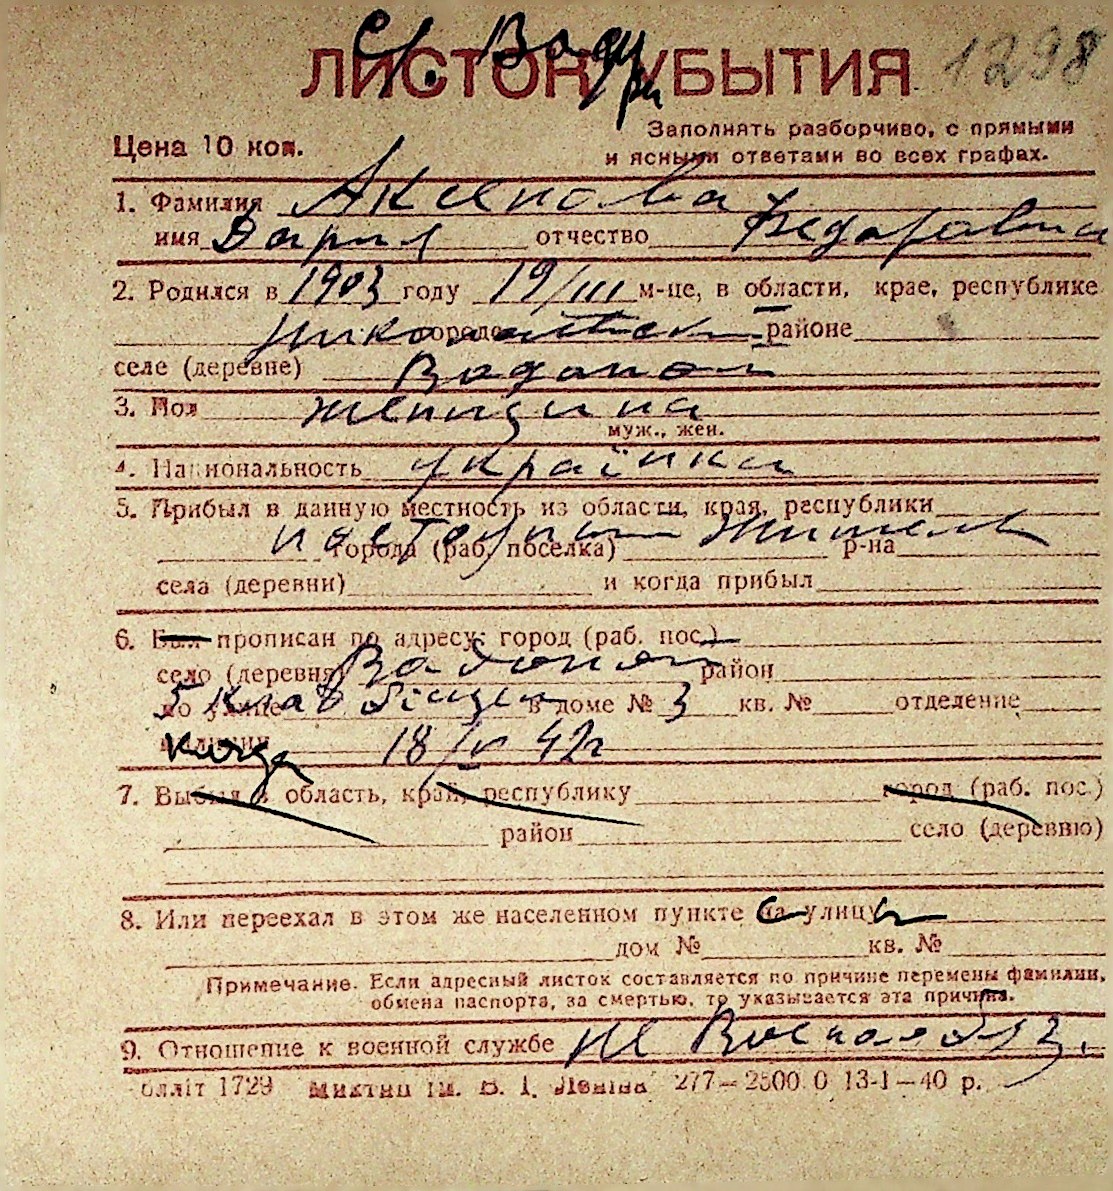 1298
ЛИСТОК УБЫТИЯ
Цена 10 коп.
Заполнять разборчиво, с прямыми
и ясными ответами во всех графах.
1. Фамилия Аксенова
имя Дария отчество Федоровна
2. Родился в 1903 году 19/III м-це, в области, крае, республике
городе районе
селе (деревне) Вадопой
3. Пол женщина
муж., жен.
4. Национальность українка
5. Прибыл в данную местность из области, края, республики
города (раб. поселка) житель р-на
села (деревни) и когда прибыл
6. Был прописан по адресу: город (раб. пос.)
село (деревня) Вадопой район
по улице 5 в доме № 3 кв. № отделение
милиции когда 18/IV 42 г
7. Выбыл в область, край, республику город (раб. пос.)
район село (деревню)
8. Или переехал в этом же населенном пункте на улицу
дом № кв. №
Примечание. Если адресный листок составляется по причине перемены фамилии,
обмена паспорта, за смертью, то указывается эта причина.
9. Отношение к военной службе не Воєнаобяз.
олліт 1729 ім. В. І. Леніна 277—2500.0 13-I—40 р.